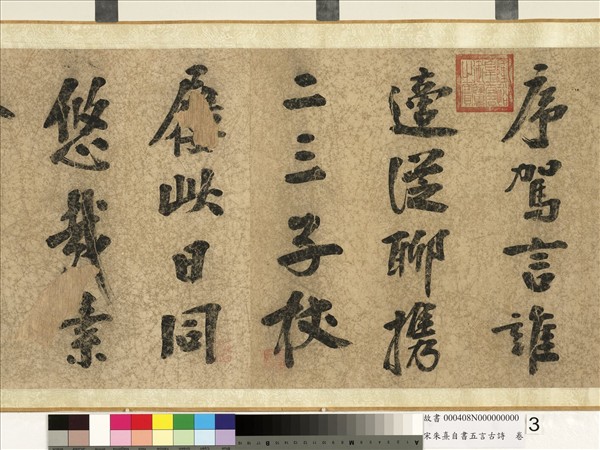 序駕言誰
適從聊携
二三子杖
屨此日同
悠哉素
故書 000408N000000000
宋朱熹自書五言古詩 卷
3